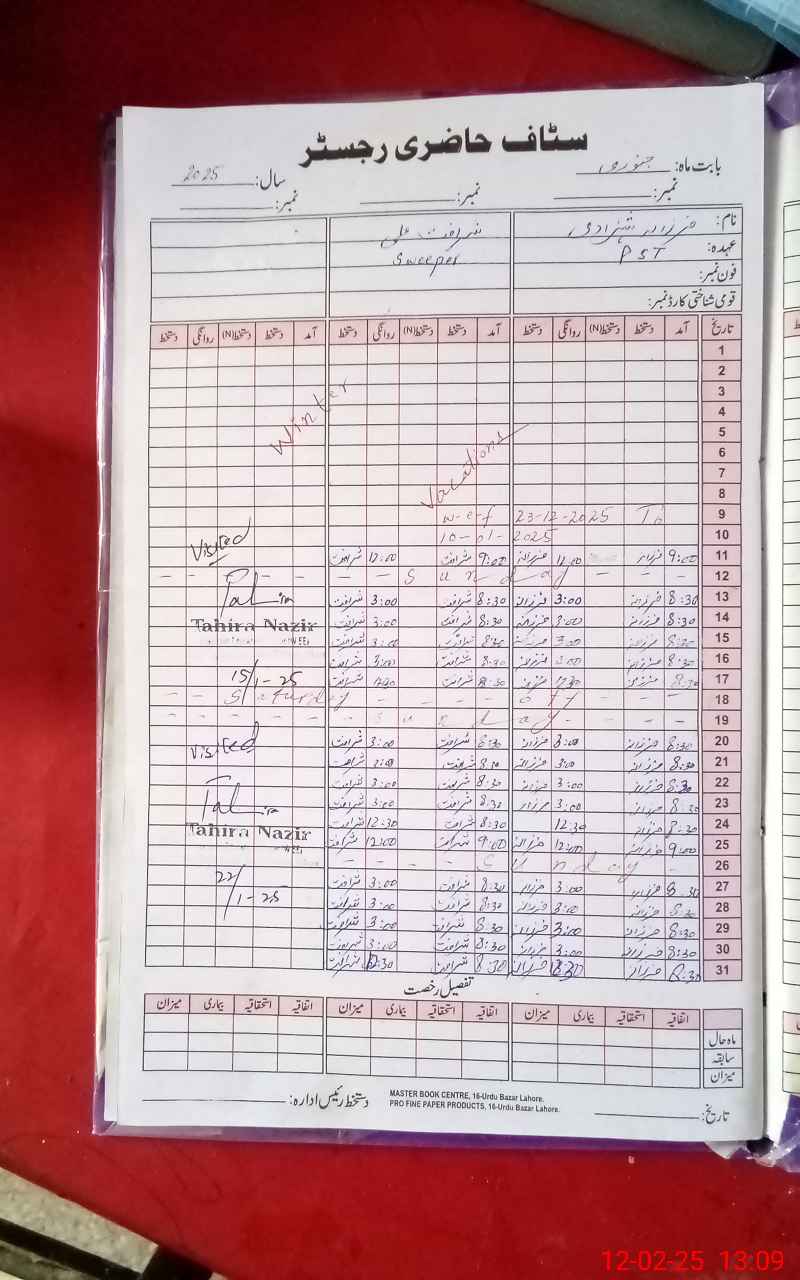 سٹاف حاضری رجسٹر
بابت ماہ: جنوری سال: 2025
نمبر: نمبر: نمبر:
نام: فرزانہ شہزادی شرافت علی
عہدہ: PST Sweeper
فون نمبر:
قومی شناختی کارڈ نمبر:
تاریخ آمد دستخط دستخط(N) روانگی دستخط آمد دستخط دستخط(N) روانگی دستخط آمد دستخط دستخط(N) روانگی دستخط
1
2
3
Winter
4
5
6
Vacations
7
8
9 w-e-f 23-12-2025 To
10 10-01-2025
11 9:00 فرزانہ 12:00 فرزانہ 9:00 شرافت 12:00 شرافت
Visited
12 - - Sunday - -
13 8:30 فرزانہ 3:00 فرزانہ 8:30 شرافت 3:00 شرافت
14 8:30 فرزانہ 3:00 فرزانہ 8:30 شرافت 3:00 شرافت
Tahira Nazir
15 8:30 فرزانہ 3:00 فرزانہ 8:30 شرافت 3:00 شرافت
16 8:30 فرزانہ 3:00 فرزانہ 8:30 شرافت 3:00 شرافت
17 8:30 فرزانہ 12:30 فرزانہ 8:30 شرافت 12:30 شرافت
15/1-25
18 - - Saturday - - off - -
19 - - Sunday - -
20 8:30 فرزانہ 3:00 فرزانہ 8:30 شرافت 3:00 شرافت
Visited
21 8:30 فرزانہ 3:00 فرزانہ 8:30 شرافت 3:00 شرافت
22 8:30 فرزانہ 3:00 فرزانہ 8:30 شرافت 3:00 شرافت
23 8:30 فرزانہ 3:00 فرزانہ 8:30 شرافت 3:00 شرافت
24 8:30 فرزانہ 12:30 8:30 شرافت 12:30 شرافت
Tahira Nazir
25 9:00 فرزانہ 12:00 فرزانہ 9:00 شرافت 12:00 شرافت
26 - - Sunday -
27 8:30 فرزانہ 3:00 فرزانہ 8:30 شرافت 3:00 شرافت
22/1-25
28 8:30 فرزانہ 3:00 فرزانہ 8:30 شرافت 3:00 شرافت
29 8:30 فرزانہ 3:00 فرزانہ 8:30 شرافت 3:00 شرافت
30 8:30 فرزانہ 3:00 فرزانہ 8:30 شرافت 3:00 شرافت
31 8:30 فرزانہ 12:30 فرزانہ 8:30 شرافت 12:30 شرافت
تفصیل رخصت
اتفاقیہ استحقاقیہ بیماری میزان اتفاقیہ استحقاقیہ بیماری میزان اتفاقیہ استحقاقیہ بیماری میزان
ماہ حال
سابقہ
میزان
تاریخ: دستخط رئیس ادارہ:
MASTER BOOK CENTRE, 16-Urdu Bazar Lahore.
PRO FINE PAPER PRODUCTS, 16-Urdu Bazar Lahore.
12-02-25 13:09